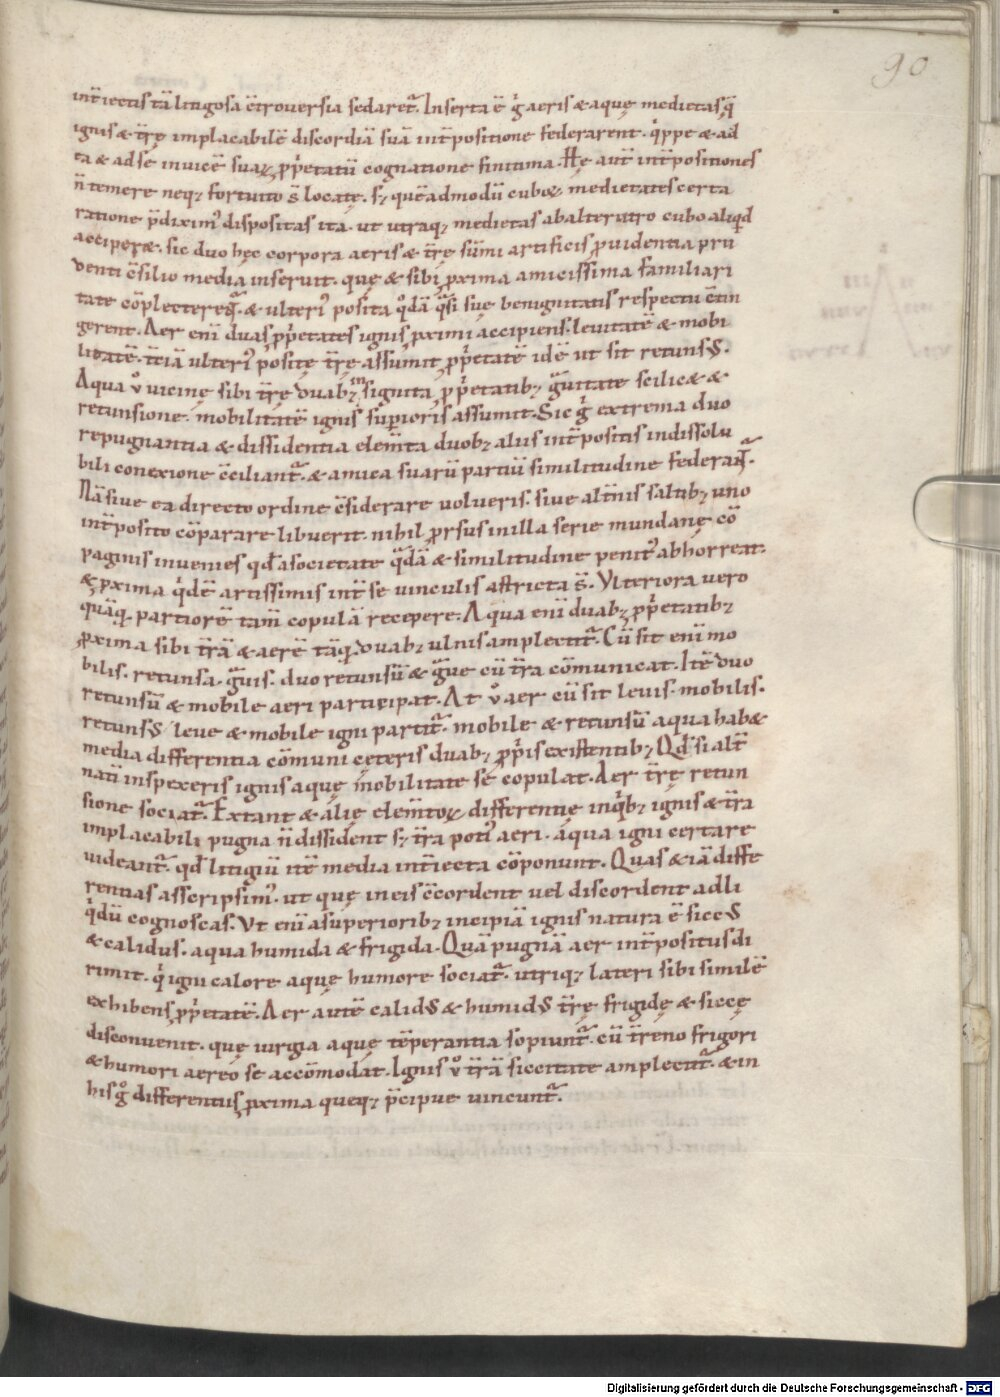 90
int̄iectis tā litigosa c̄troversia sedaret᷑. Inserta ē g̊ aeris & aquę medietas q̄
ignis & t̄rę implacabilē discordiā suā int̄positione federarent. q̍ppe & ad
ta & ad se invicē suaꝝ ꝓp̍etatū cognatione finitima. Hę aut̄ int̄positiones
n̄ temere neqꝫ fortuito s̄ locatę. sꝫ quēadmodū cuboꝝ medietates certa
ratione p̄diximꝰ dispositas ita. ut utraqꝫ medietas ab alterutro cubo aliqd
acciperet. sic duo hęc corpora aeris & t̄rę sūmi artificis ꝓuidentia pru
denti c̄silio media inseruit. quę & sibi ꝓxima amicissima familiari
tate cōplecterent᷑. & ulteriꝰ posita q̊dā q̄si suę benignitatis respectu c̄tin
gerent. Aer eni duas ꝓp̍etates ignis ꝓximi accipiens. leuitatē & mobi
litatē. t̄ciā ulteriꝰ positę t̄rę assumit ꝓp̍etatē idē ut sit retunsꝰ.
Aqua v̊ vicinę sibi t̄rę duabꝫ insignita ꝓp̍etatibꝫ g̃uitate scilic& &
retunsione. mobilitatē ignis sup̱ioris assumit. Sic g̊ extrema duo
repugnantia & dissidentia elem̄ta duobꝫ aliis int̄positis indissolu
bili conexione c̄ciliant᷑. & amica suarū partiū similitudine federant᷑.
Nā sive ea directo ordine c̄siderare volveris. sive alt̄nis saltibꝫ uno
int̄posito cōparare libuerit. nihil prsus in illa serie mundanę cō
paginis invenies qd̄ a societate q̄dā & similitudine penitꝰ abhorreat.
& ꝓxima q̍dē artissimis int̄ se vinculis astricta s̄. Ulteriora vero
quāq̄ partiorē tam̄ copulā recepere. Aqua eni duabꝫ ꝓp̍etatibꝫ
ꝓxima sibi t̄rā & aerē tāq̄ duabꝫ ulnis amplectit᷑. Cū sit eni mo
bilis. retunsa. g̃uis. duo retunsū & g̃ue cū t̄ra cōmunicat. Itē duo
retunsū & mobile aeri participat. At v̊ aer cū sit levis. mobilis.
retunsꝰ leve & mobile igni partit᷑. mobile & retunsū aqua hab&
media differentia cōmuni ceteris duabꝫ ꝓp̍is existentibꝫ. Qd̄ si alt̄
natī inspexeris ignis aquę mobilitate se copulat. Aer t̄rę retun
sione sociat᷑. Extant & alię elem̄toꝝ differentię in q̍bꝫ ignis & t̄ra
implacabili pugna n̄ dissident sꝫ t̄ra potiꝰ aeri. aqua igni certare
videant᷑. qd̄ litigiū itē media int̄iecta cōponunt. Quas & iā diffe
rentias asscripsimꝰ. ut quę in eis c̄cordent vel discordent ad li
q̍dū cognoscas. Ut eni a superioribꝫ incipiā ignis natura ē siccꝰ
& calidus. aqua humida & frigida. Quā pugnā aer int̄positus di
rimit. q̍ igni calore aquę humore sociat᷑. utriqꝫ lateri sibi similē
exhibens ꝓp̍etatē. Aer autē calidꝰ & humidꝰ t̄rę frigidę & siccę
disconvenit. quę iurgia aquę tēperantia sopiunt᷑. cū t̄reno frigori
& humori aereo se accōmodat. Ignis v̊ t̄rā siccitate amplectit᷑. & in
his g̊ differentiis ꝓxima queqꝫ p̄cipue vincunt᷑.
Digitalisierung gefördert durch die Deutsche Forschungsgemeinschaft - DFG